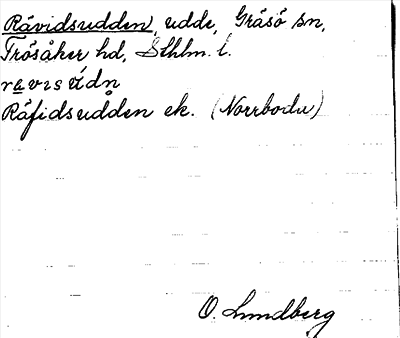 Råvidsudden, udde, Gräsö sn,
Frösåker hd, Sthlm. l.
Råfidsudden ek. (Norrboda)
O. Lundberg